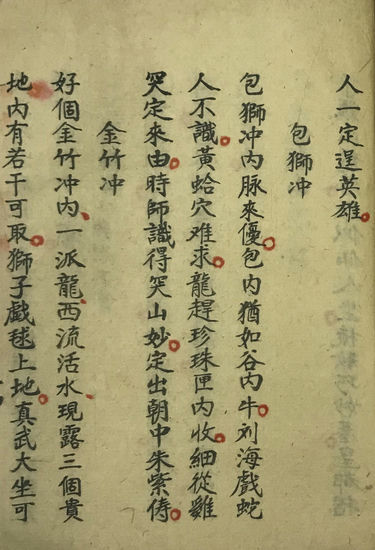 人一定逞英雄
包獅冲
包獅冲内脉來優包内猶如谷内牛刘海戲蛇
人不識黃蛤穴难求龍趕珍珠匣内收細從雞
哭定來由時師識得哭山妙定出朝中朱紫俦
金竹冲
好個金竹冲内一派龍西流活水現露三個貴
地内有若干可取獅子戲毬上地真武大坐可